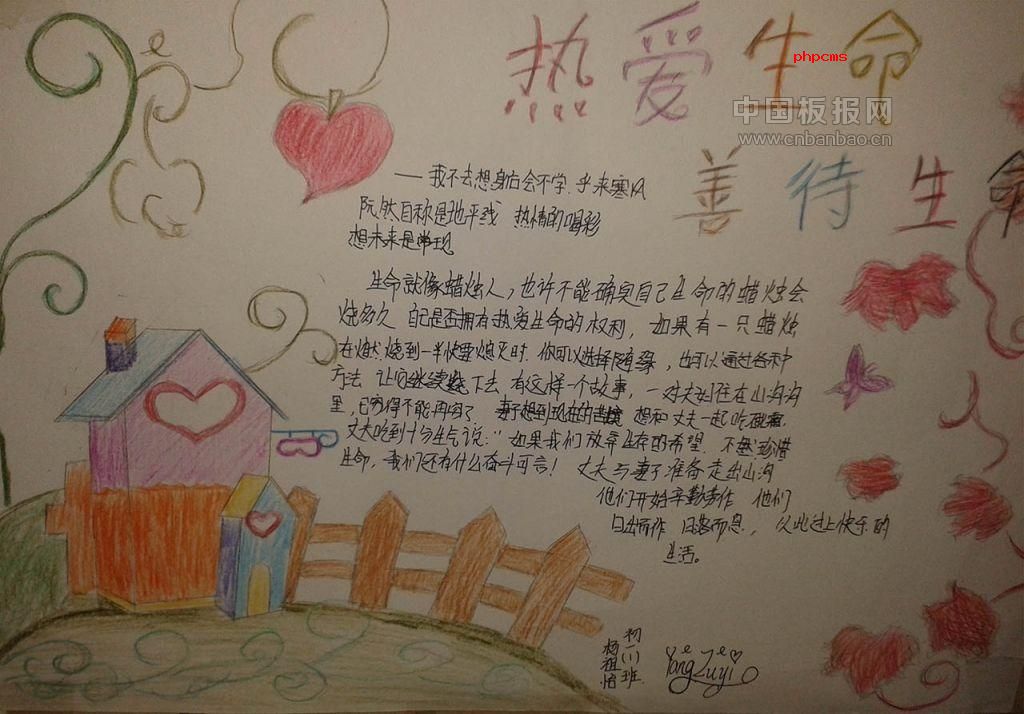 热爱生命
phpcms
中国板报网
www.cnbanbao.cn
善待生命
——我不去想身后会不学
既然目标是地平线 热情的喝彩
想未来是
生命就像蜡烛人，也许不能确实自己生命的蜡烛会
烧多久 自己是否拥有热爱生命的权利，如果有一只蜡烛
在燃烧到一半快要熄灭时，你可以选择随缘，也可以通过各种
方法 让它继续烧下去 有这样一个故事，一对夫妇住在山沟沟
里，已穷得不能再穷了 妻子想到现在的 想和丈夫一起吃
丈夫吃到十分生气说：“如果我们放弃生存的希望 不 珍惜
生命，我们还有什么奋斗可言！ 丈夫与妻子准备走出山沟
他们开始辛勤劳作 他们
日出而作 日落而息，从此过上快乐的
生活。
初一(1)班
杨祖怡
Yang Zuyi